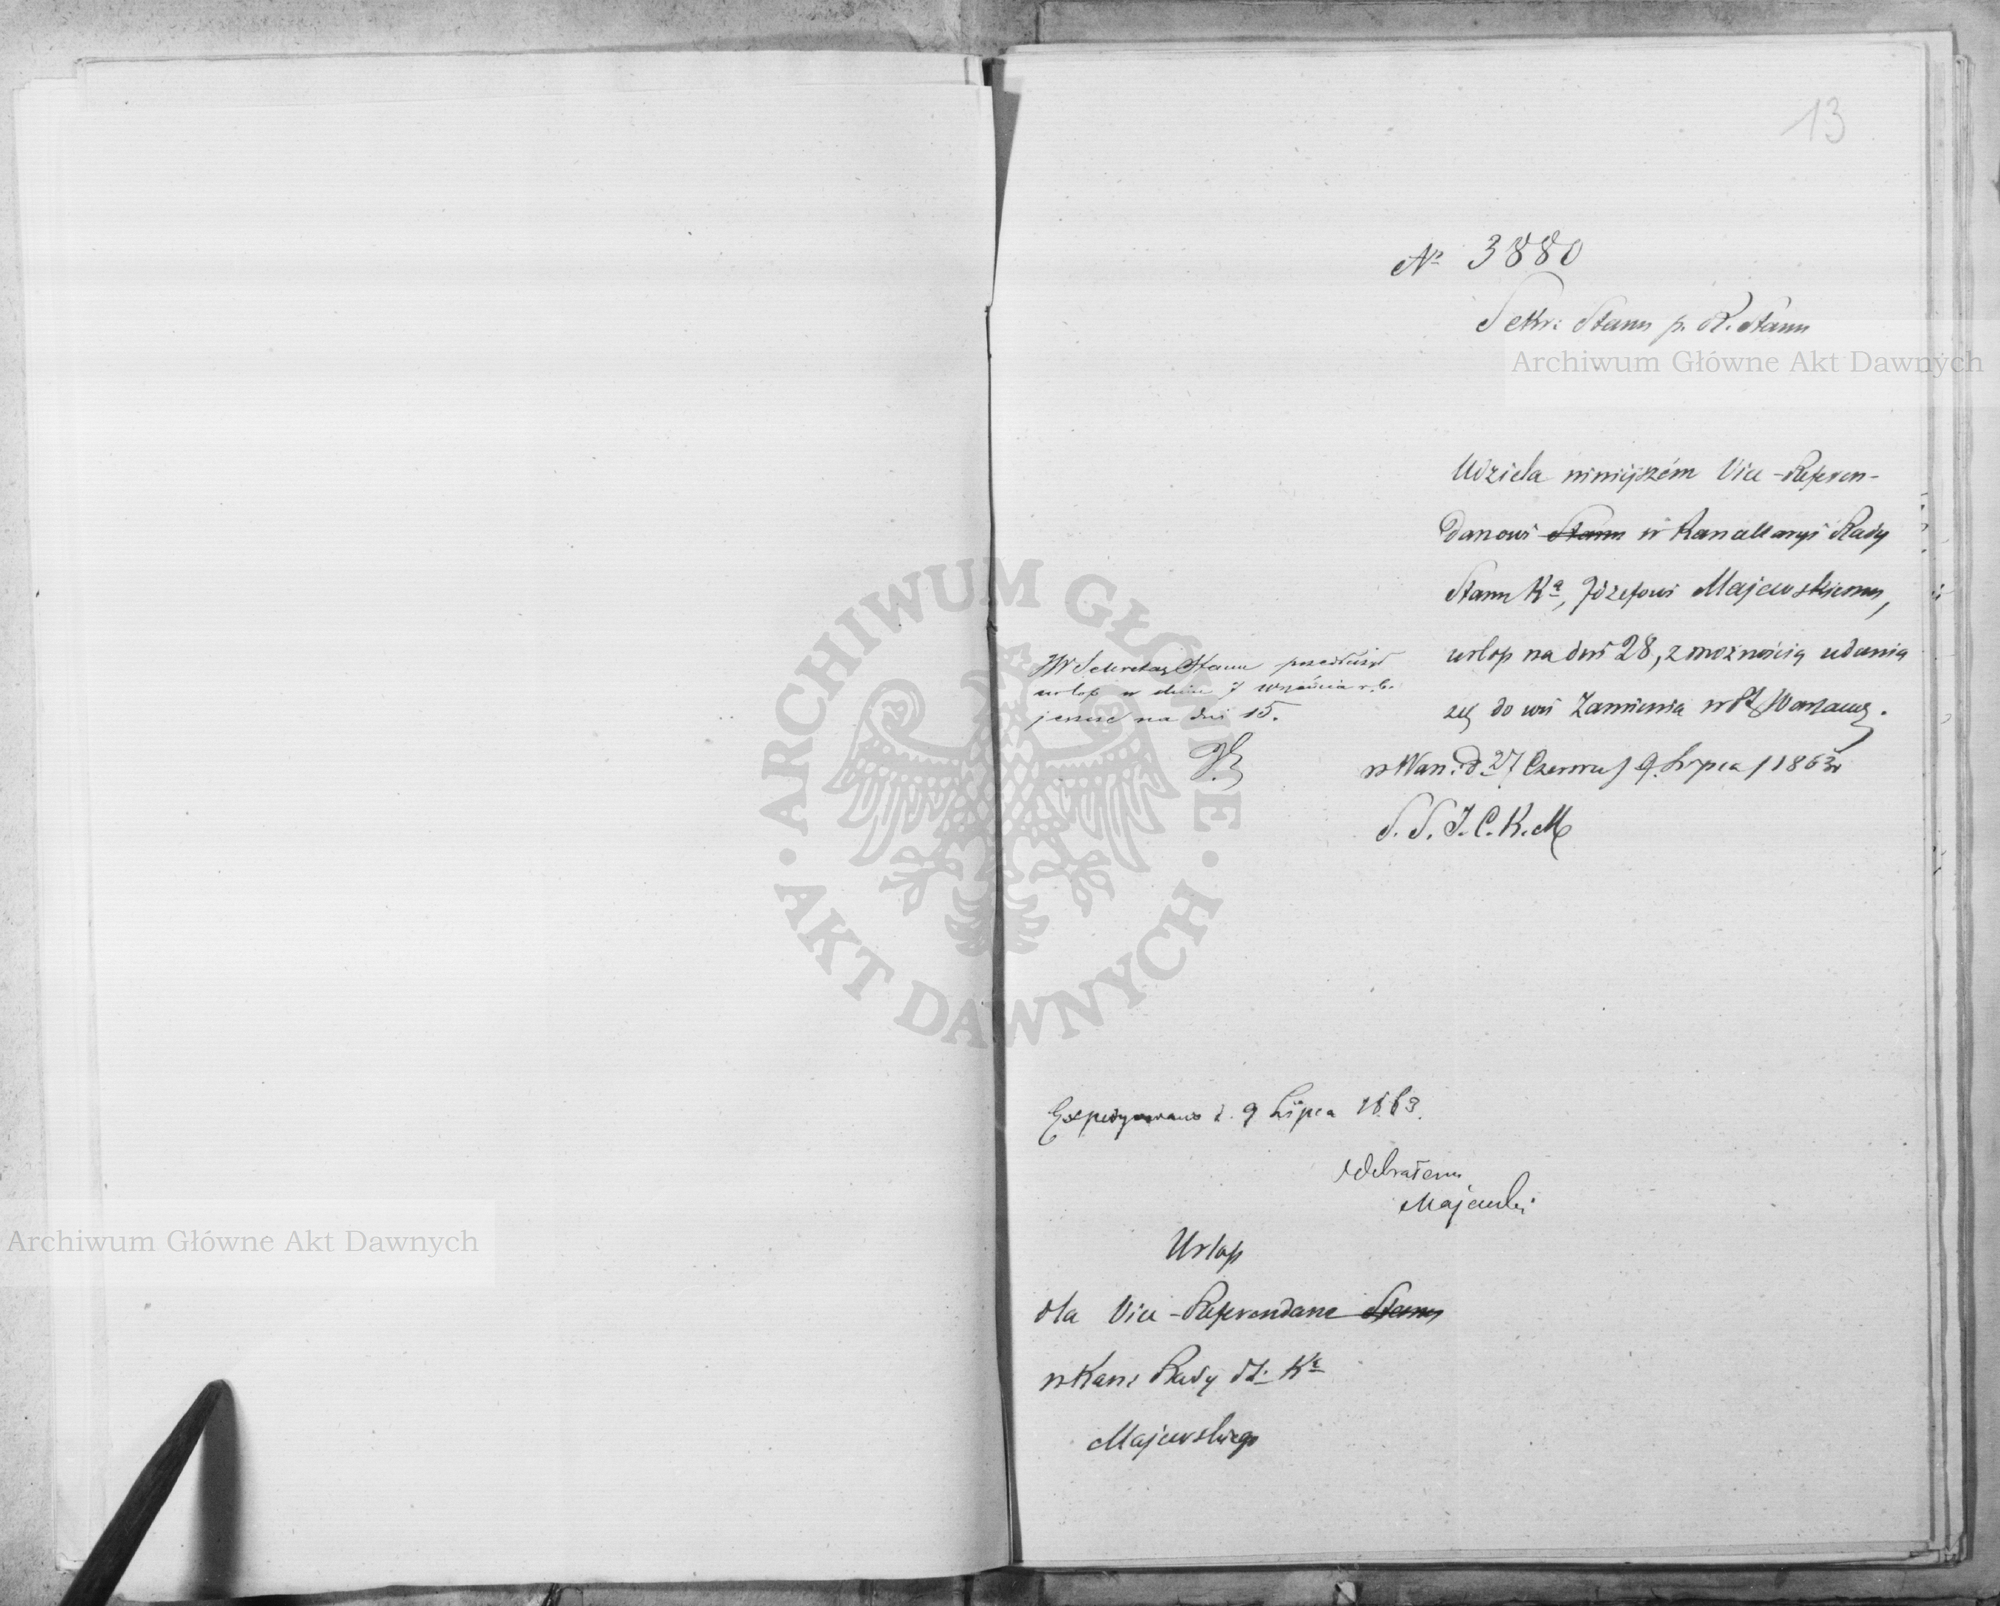 13
№ 3880
Sekr: Stanu p. R. Stanu
Archiwum Główne Akt Dawnych
Udziela niniejszém Vice-Referen-
darzowi Stanu w Kancellaryi Rady
Stanu Ka, Józefowi Majewskiemu,
urlop na dni 28, z możnością udania
się do wsi Zamienia w Pt Warszaws.
w War: d. 27 Czerwca / 9. Lipca / 1863 r
S. S. J. C. K. M
JW Sekretarz Stanu przedłużył
urlop w dniu 7 Września r. b.
jeszcze na dni 15.
ARCHIWUM GŁÓWNE
· AKT DAWNYCH ·
Expedyowano d. 9 Lipca 1863.
Odebrałem
Majewski
Archiwum Główne Akt Dawnych
Urlop
dla Vice-Referendarza Stanu
w Kanc Rady St. Ka
Majewskiego